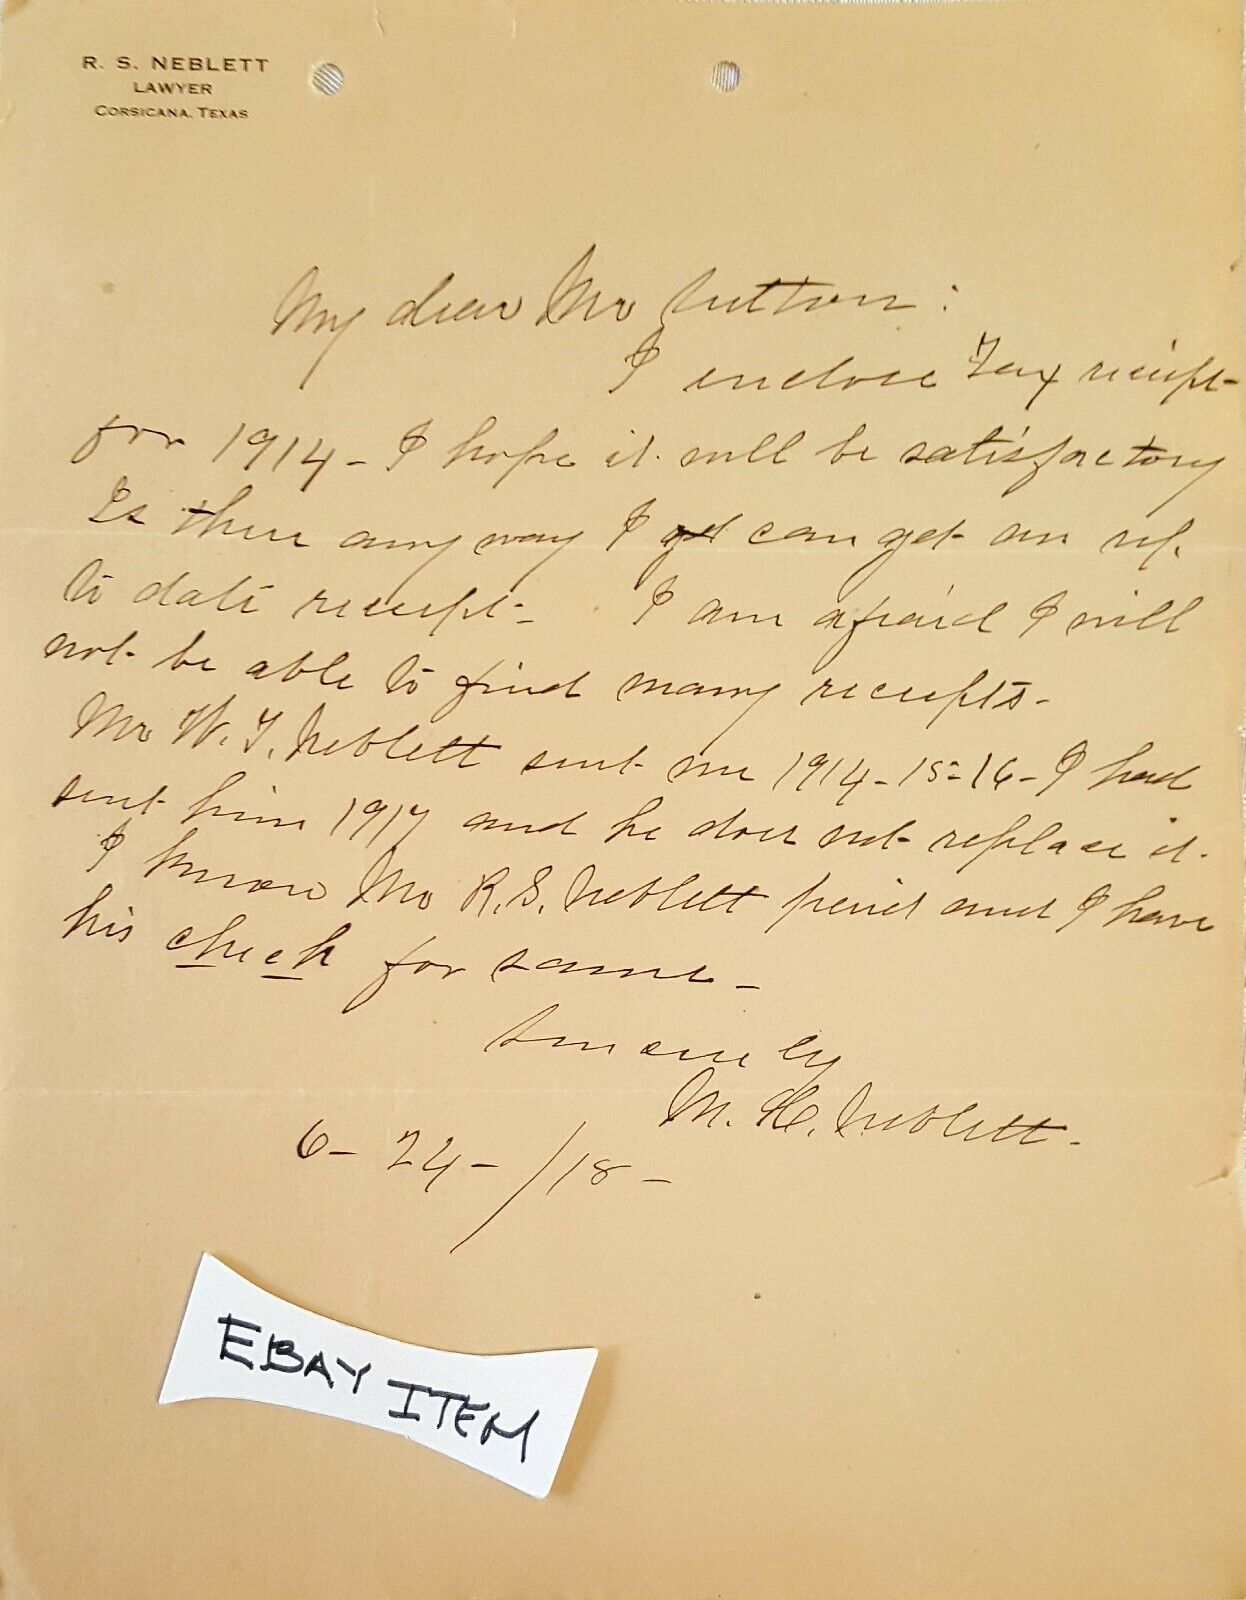 R. S. NEBLETT
LAWYER
CORSICANA, TEXAS
My dear Mr Sutton:
I enclose Tax receipt-
for 1914 - I hope it will be satisfactory
Is there any way I get can get an up.
to date receipt - I am afraid I will
not be able to find many receipts -
Mr W. T. Neblett sent me 1914 - 15 - 16 - I had
sent him 1917 and he does not replace it.
I know Mr R. S. Neblett paid and I have
his check for same -
Sincerely
M. H. Neblett -
6 - 24 - / 18 -
EBAY ITEM